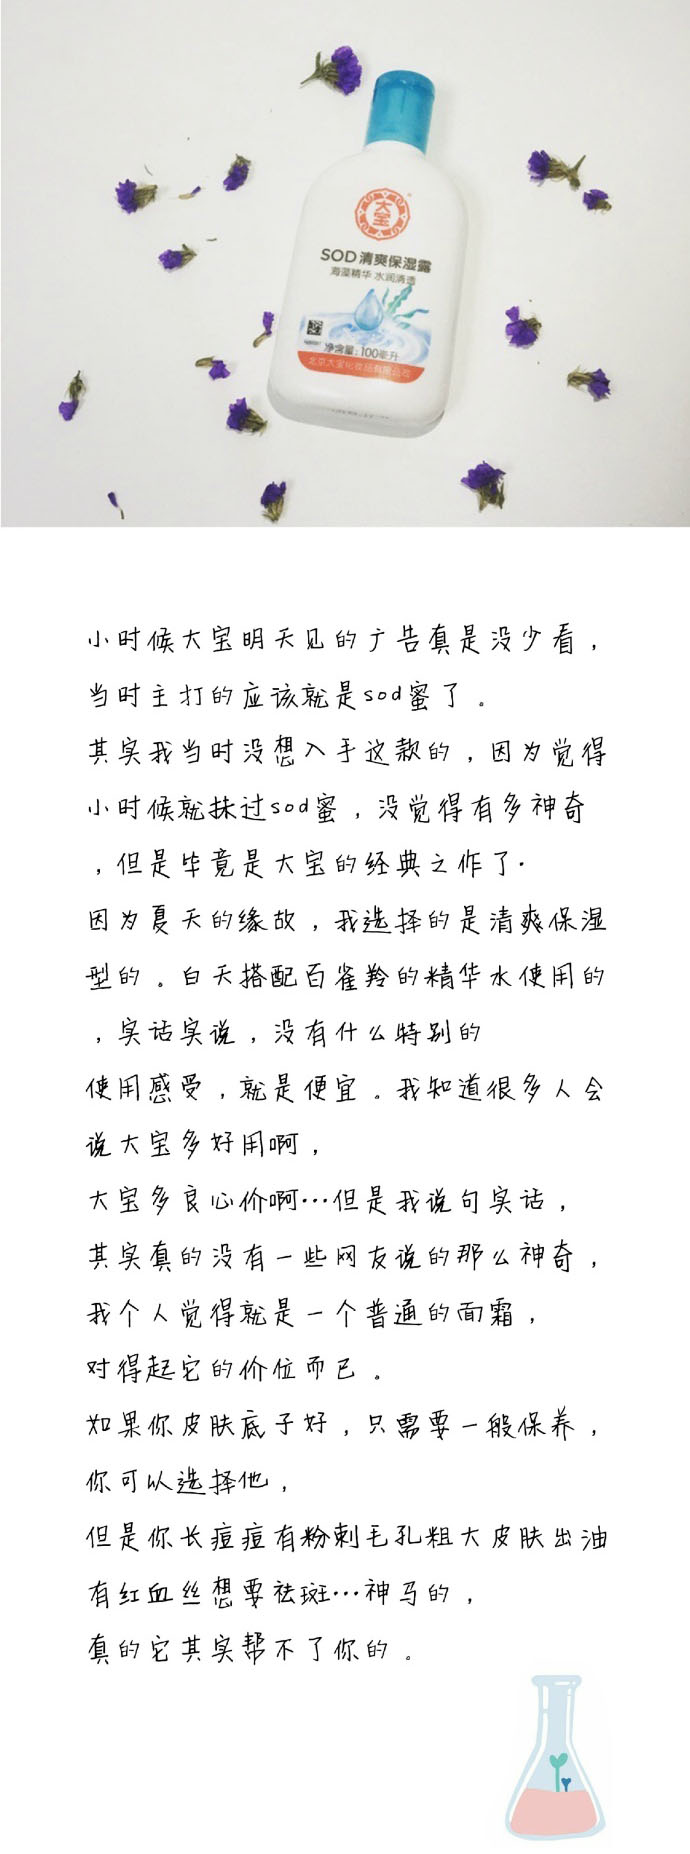 大宝
SOD 清爽保湿露
海藻精华 水润清透
净含量:100毫升
北京大宝化妆品有限公司
小时候大宝明天见的广告真是没少看，
当时主打的应该就是sod蜜了。
其实我当时没想入手这款的，因为觉得
小时候就抹过sod蜜，没觉得有多神奇
，但是毕竟是大宝的经典之作了·
因为夏天的缘故，我选择的是清爽保湿
型的。白天搭配百雀羚的精华水使用的
，实话实说，没有什么特别的
使用感受，就是便宜。我知道很多人会
说大宝多好用啊，
大宝多良心价啊…但是我说句实话，
其实真的没有一些网友说的那么神奇，
我个人觉得就是一个普通的面霜，
对得起它的价位而已。
如果你皮肤底子好，只需要一般保养，
你可以选择他，
但是你长痘痘有粉刺毛孔粗大皮肤出油
有红血丝想要祛斑…神马的，
真的它其实帮不了你的。